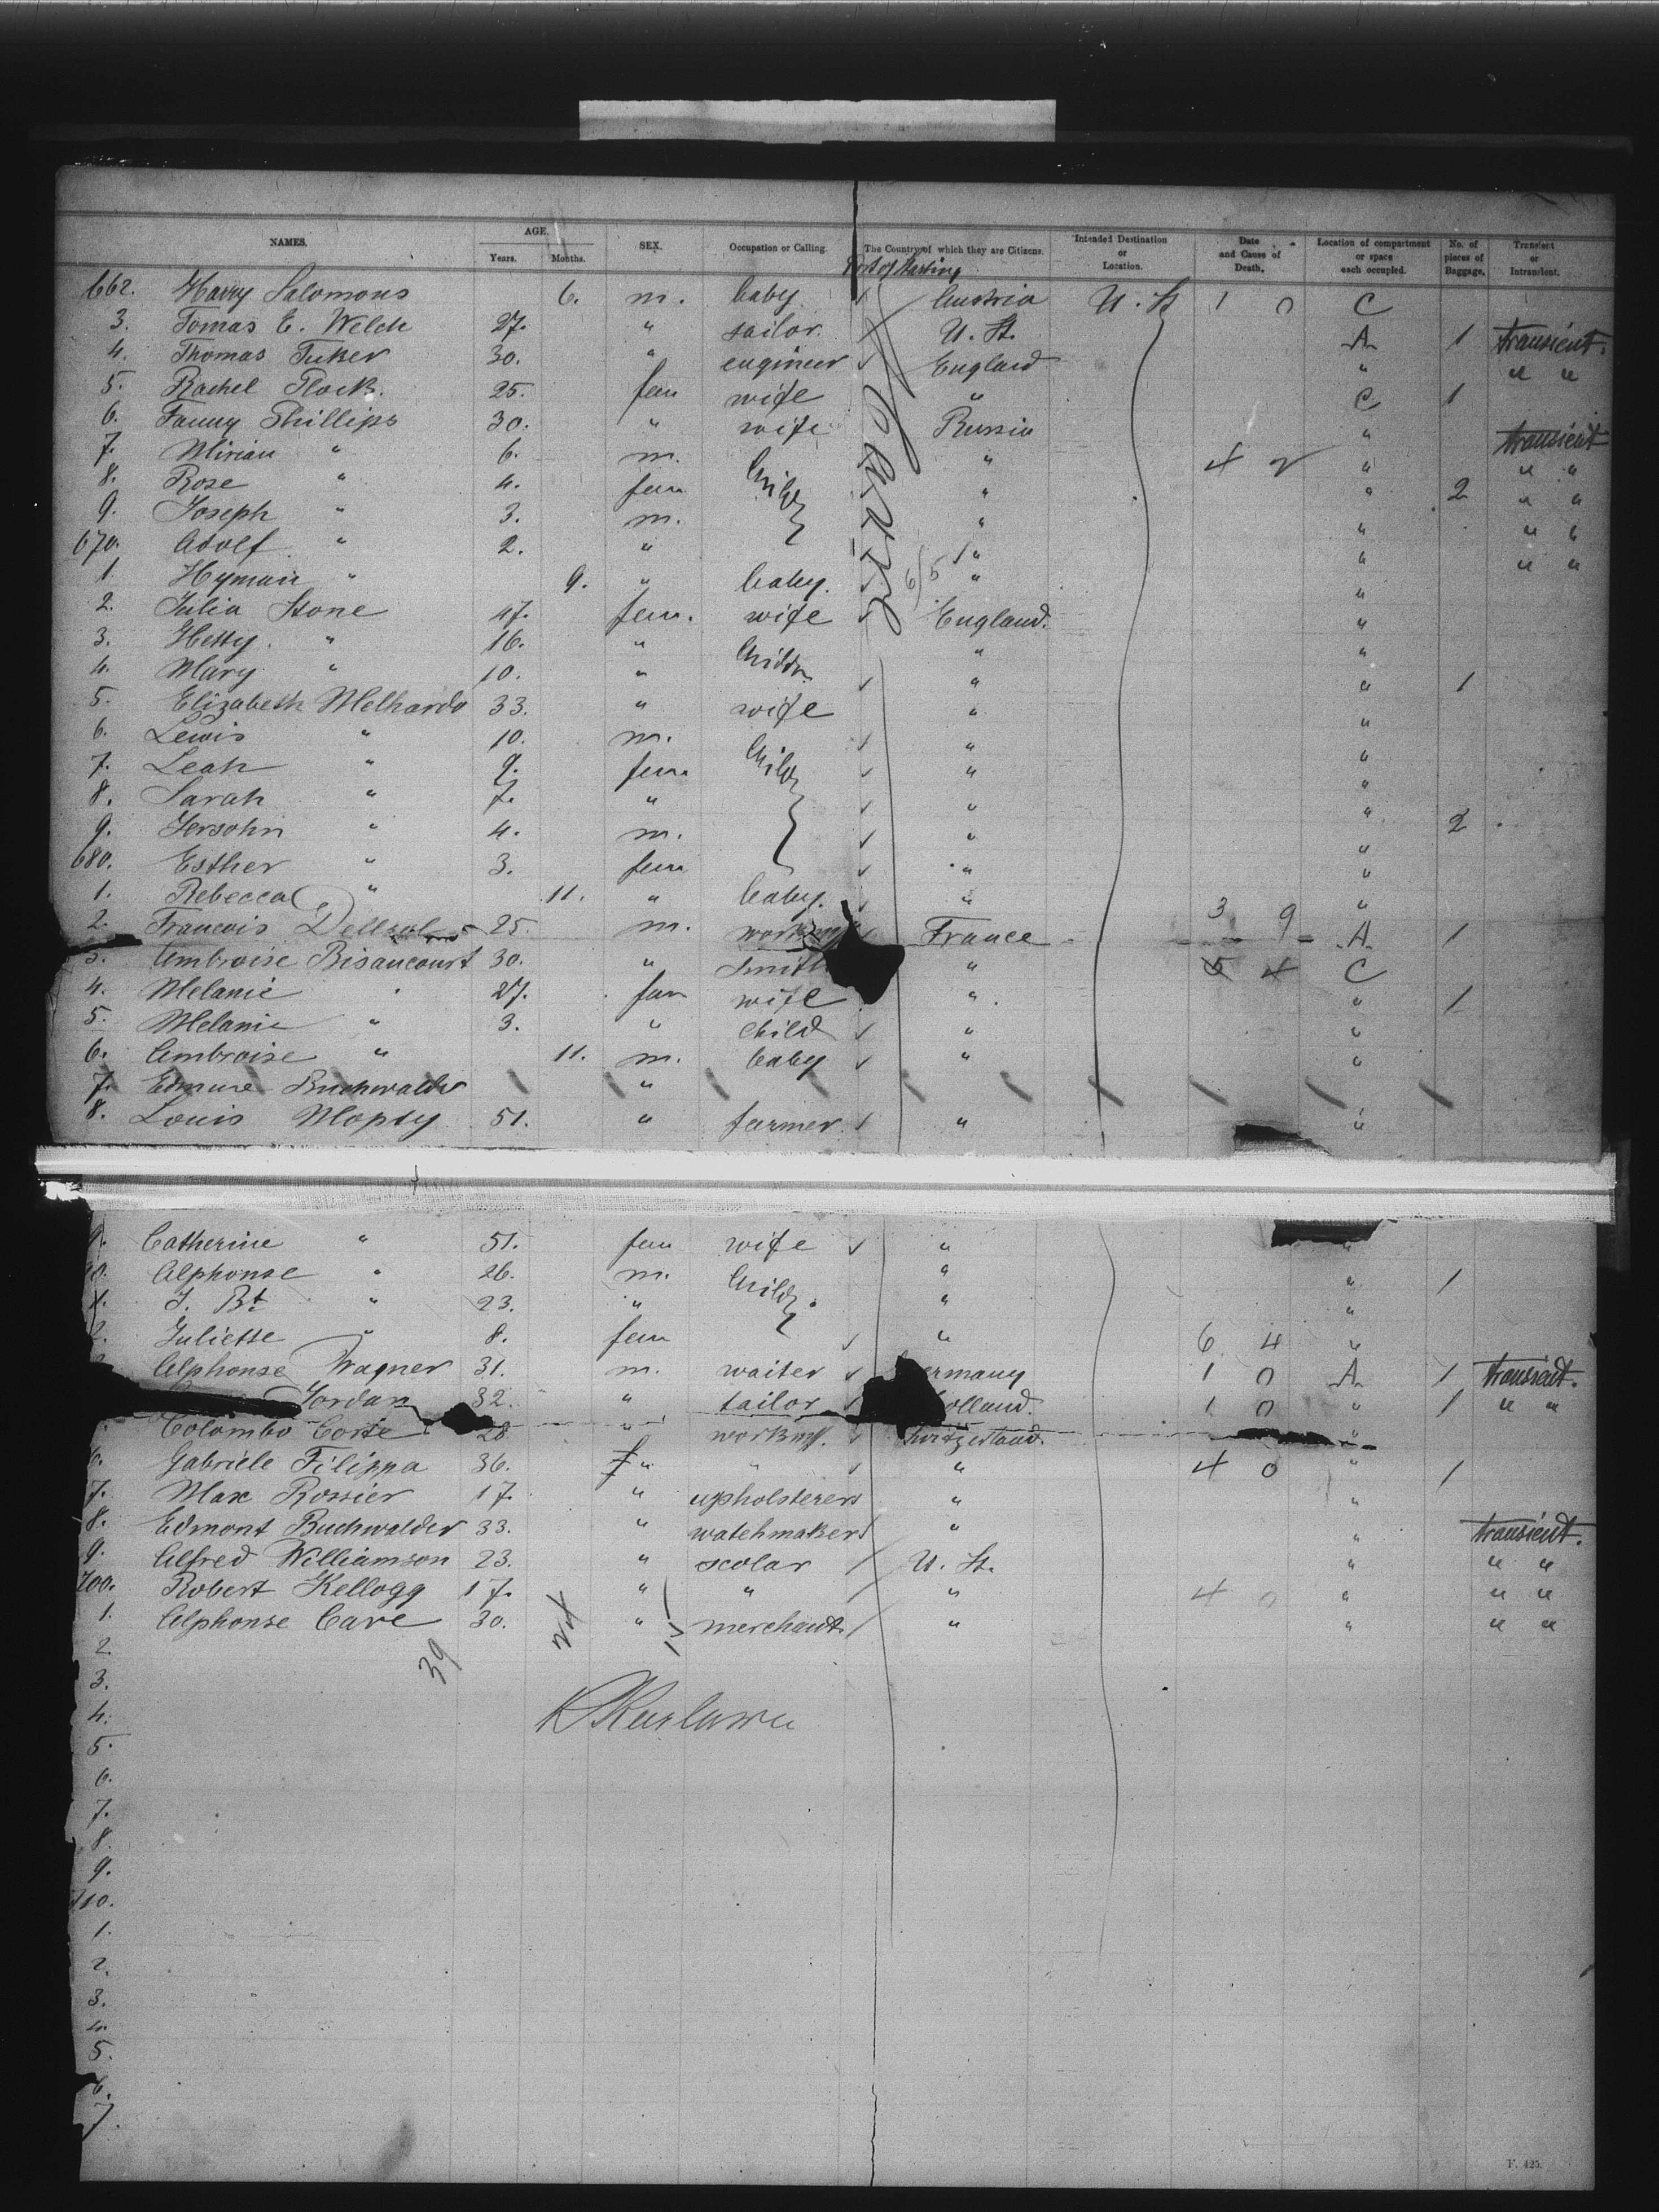 NAMES. AGE. Years. Months. SEX. Occupation or Calling. The Country of which they are Citizens. Intended Destination or Location. Date and Cause of Death. Location of compartment or space each occupied. No. of pieces of Baggage. Transient or Intransient.
Port of Starting
662. Harry Salomons 6. m. baby Austria U. St 1 0 C
3. Tomas E. Welch 27. " sailor U. St. A 1 transient.
4. Thomas Tuker 30. " engineer England " " "
5. Rachel Plock. 25. fem wife " C 1
6. Fanny Phillips 30. " wife Russia " transient
7. Mirian " 6. m. Childr " 4 2 " " "
8. Rose " 4. fem " " 2 " "
9. Joseph " 3. m. " " " "
670. Adolf " 2. " " " " "
1. Hyman " 9. " baby. " "
2. Julia Stone 47. fem. wife England. "
3. Hetty. " 16. " Childr. " "
4. Mary " 10. " " " 1
5. Elizabeth Melhardo 33. " wife " "
6. Lewis " 10. m. Childr " "
7. Leah " 9. fem " "
8. Sarah " 7. " " "
9. Gersohn " 4. m. " " 2
680. Esther " 3. fem " "
1. Rebecca " 11. " baby. " "
2. Francois 25. m. France 3 9 A 1
3. Ambroise Bisancourt 30. " Smith " 5 4 C
4. Melanie " 27. fem wife " " 1
5. Melanie " 3. " child " "
6. Ambroise " 11. m. baby " "
7. Edmure Buchwalder "
8. Louis Mopty 51. " farmer. " "
9. Catherine " 51. fem wife " "
90. Alphonse " 26. m. Childr " " 1
1. J. Bt " 23. " " "
2. Juliette " 8. fem " 6 4 "
Alphonse Wagner 31. m. waiter ermany 1 0 A 1 transient.
Jordan 32. " tailor olland. 1 0 " 1 " "
Colombo Corte 28 " workm. Switzerland. "
6. Gabriele Filippa 36. f " " " 4 0 " 1
7. Max Rossier 17. " upholsterer " "
8. Edmont Buchwalder 33. " watchmaker " " transient.
9. Alfred Williamson 23. " scolar U. St. " " "
700. Robert Kellogg 17. " " " 4 0 " " "
1. Alphonse Care 30. " merchant " " " "
2.
39
3.
4.
5.
6.
7.
8.
9.
710.
1.
2.
3.
4.
5.
6.
7.
F. 425.